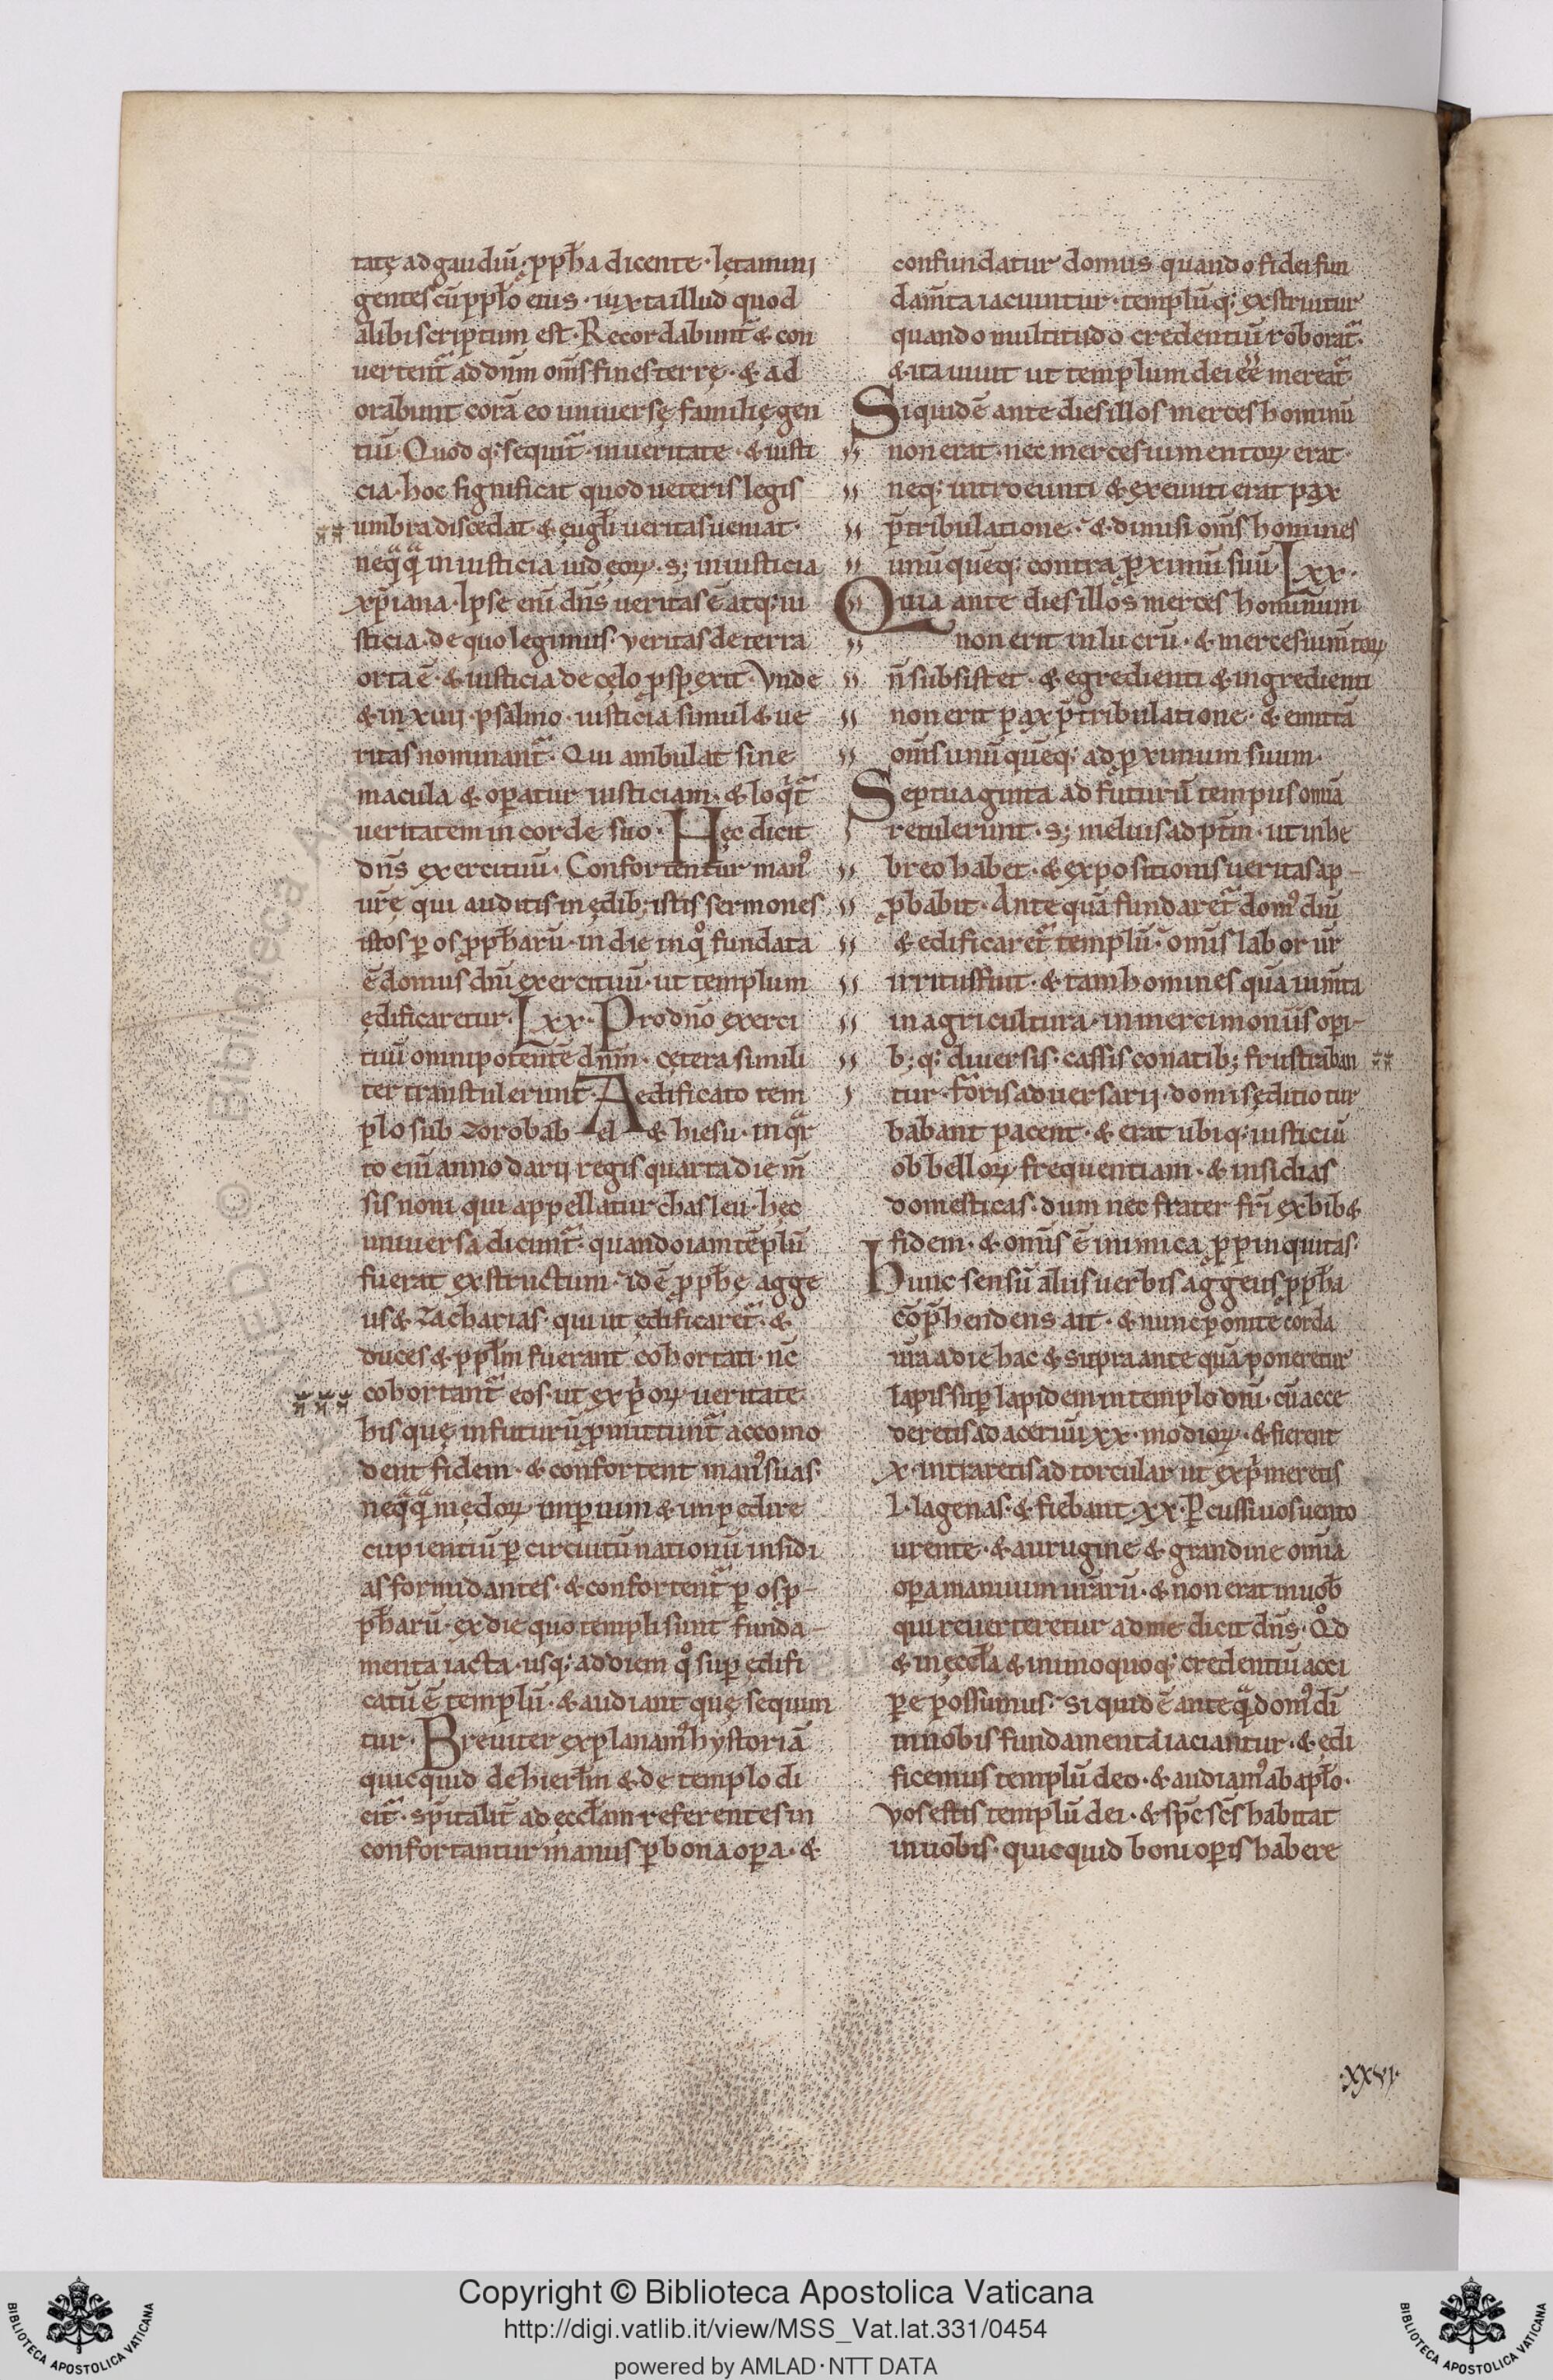 tatę ad gaudiū· ꝓpħa dicente· lętamini
gentes cū ppľo eius· iuxta illud quod
alibi scriptum est· Recordabunt̃ & con
uertent̃ ad dn̄m om̄s fines terrę· & ad
orabunt corā eo uniuersę familię gen
tiū· Quod q; sequit̃· in ueritate· & iusti
cia· hoc significat quod ueteris legis
umbra discedat· & eugl̄ii ueritas ueniat·
neq̄q̄ in iusticia iudęoꝝ· s; in iusticia
xp̄iana· Ipse eni dn̄s ueritas ē atq; iu
sticia· de quo legimus· Veritas de terra
orta ē· & iusticia de cęlo ꝓspexit· Vnde
& in xiiij· psalmo· iusticia simul & ue
ritas nominant̃· Qui ambulat sine
macula & oꝑatur iusticiam· & loqͥt̃
ueritatem in corde suo· Hęc dicit
dn̄s exercituū· Confortentur manꝰ
ur̄ę qui auditis in ędib; istis sermones
istos ꝑ os ꝓpħarū· in die in qͦ fundata
ē domus dn̄i exercituū· ut templum
ędificaretur· Lxx· Pro dn̄o exerci
tuū omnipotentē dn̄m· cętera simili
ter transtulerunt· Aedificato tem
plo sub zorobab el & hiesu· in qᷓr
to eni anno darij regis quarta die m̄
sis noni qui appellatur chasleu· hęc
uniuersa dicunt̃· quando iam tēplū
fuerat exstructum· idē ꝓpħę agge
us & zacharias· qui ut ędificaret̃· &
duces & ppľm fuerant cohortati· nc̄
cohortant̃ eos· ut ex p̄oꝝ ueritate
his quę in futurū ꝓmittunt̃ accomo
dent fidem· & confortent manꝰ suas·
neq̄q̄ medoꝝ imꝑium & imꝑedire
cupientiū ꝑ circuitū nationū insidi
as formidantes· & confortent̃ ꝑ os ꝓ-
pħarū· ex die quo templi sunt funda-
menta iacta· usq; ad diem qͦ suꝑędifi
catū ē templū· & audiant quę sequun
tur· Breuiter explanamꝰ hystoriā
quicquid de hierl̄m & de templo di
cit̃· sp̄italit̃ ad ęccl̄am referentes in
confortantur manus ꝑ bona oꝑa· &
confundatur domus quando fidei fun
dam̄ta iaciuntur· templūq; exstruitur
quando multitudo credentiū roborat̃·
& ita uiuit ut templum dei ee mereat̃·
Siquidē ante dies illos merces hominū
non erat· nec merces iumentoꝝ erat·
neq; introeunti & exeunti erat pax
p̄ tribulatione· & dimisi om̄s homines
unūquēq; contra ꝓximū suū· Lxx·
Quia ante dies illos merces hominum
non erit in lucrū· & merces ium̄toꝝ
n̄ subsistet· & egredienti & ingredienti
non erit pax p̄ tribulatione· & emittā
om̄s unūquēq; ad ꝓximum suum·
Septuaginta ad futurū tempus om̄ia
retulerunt· s; melius ad p̄tm· ut in he
breo habet· & expositionis ueritas ap-
ꝓbabit· Ante quā fundaret̃ domꝰ dn̄i
& edificaret̃ templū· omis labor ur̄
irritus fuit· & tam homines quā ium̄ta
in agricultura· in mercimoniis opi-
b; q; diuersis· cassis conatib; frustraban
tur· foris aduersarij· domi seditio tur
babant pacem· & erat ubiq; iusticiū
ob belloꝝ frequentiam· & insidias
domesticas· dum nec frater fr̄i exhib&
fidem· & omis ē inimica ꝓpinquitas·
Hunc sensū aliis uerbis aggeus ꝓpħa
cōp̄hendens ait· & nunc ponite corda
ur̄a a die hac & supra ante quā poneretur
lapis suꝑ lapidem in templo dn̄i· cū acce
deretis ad aceruū xx· modioꝝ· & fierent
x· intraretis ad torcular ut exp̄meretis
l· lagenas· & fiebant xx· ꝑcussi uos uento
urente· & aurugine & grandine om̄ia
oꝑa manuum urārū· & non erat in uob̄
qui reuerteretur ad me dicit dn̄s· Qͦd
& in ęccl̄a & in unoquoq; credentiū acci
pe possumus· siquidē anteq̄ domꝰ dī
in nobis fundamenta iaciantur· & ędi
ficemus templū deo· & audiamꝰ ab apl̄o·
Vos estis templū dei· & sp̄c sc̄s habitat
in uobis· quicquid boni oꝑis habere
·xxvi·
© Biblioteca Apostolica Vaticana
Copyright © Biblioteca Apostolica Vaticana
http://digi.vatlib.it/view/MSS_Vat.lat.331/0454
powered by AMLAD·NTT DATA
BIBLIOTECA APOSTOLICA VATICANA
BIBLIOTECA APOSTOLICA VATICANA